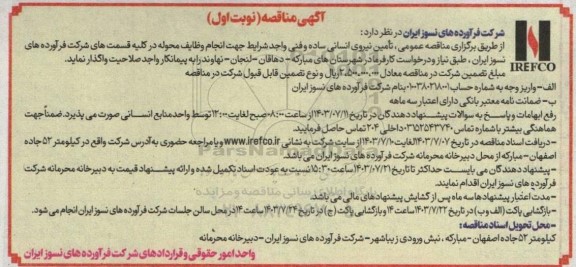 آگهی مناقصه (نوبت اول)
شرکت فرآورده های نسوز ایران در نظر دارد :
از طریق برگزاری مناقصه عمومی ، تأمین نیروی انسانی ساده و فنی واجد شرایط جهت انجام وظایف محوله در کلیه قسمت های شرکت فرآورده های
نسوز ایران ، طبق نیاز و درخواست کارفرما در شهرستان های مبارکه - دهاقان - لنجان - نهاوند را به پیمانکار واجد صلاحیت واگذار نماید.
مبلغ تضمین شرکت در مناقصه معادل ۲،۵۰۰،۰۰۰،۰۰۰ ریال و نوع تضمین قابل قبول شرکت در مناقصه
IREFCO
الف - واریز وجه به شماره حساب ۰۱۰۰۳۸۰۲۱۸۰۰۱ بنام شرکت فرآورده های نسوز ایران
ب - ضمانت نامه معتبر بانکی دارای اعتبار سه ماهه
رفع ابهامات و پاسخ به سوالات پیشنهاد دهندگان در تاریخ ۱۴۰۳/۰۷/۱۱ از ساعت ۰۸:۰۰ صبح لغایت ۱۲:۰۰ توسط واحد منابع انسانی صورت می پذیرد. ضمناً جهت
هماهنگی بیشتر با شماره تماس ۰۳۱۵۲۵۴۳۷۴۰ داخلی ۲۰۴ تماس حاصل فرمایید.
- دریافت اسناد مناقصه در تاریخ ۱۴۰۳/۰۷/۰۷ لغایت ۱۴۰۳/۰۷/۱۰ از سایت شرکت به نشانی www.irefco.ir و یا مراجعه حضوری به آدرس شرکت واقع در کیلومتر ۵۲ جاده
اصفهان - مبارکه از محل دبیرخانه محرمانه شرکت فرآورده های نسوز ایران می باشد.
- پیشنهاد دهندگان می بایست حداکثر تا تاریخ ۱۴۰۳/۰۷/۲۱ تا ساعت ۱۵:۳۰ نسبت به عودت اسناد تکمیل شده و ارائه پیشنهاد قیمت به دبیرخانه محرمانه شرکت
فرآورده های نسوز ایران اقدام نمایند.
- مدت اعتبار پیشنهادها سه ماه پس از گشایش پیشنهادهای مالی می باشد.
- بازگشایی پاکت (الف و ب) در تاریخ ۱۴۰۳/۷/۲۲ در ساعت ۱۴ و بازگشایی پاکت (ج) در تاریخ ۱۴۰۳/۷/۲۴ ساعت ۱۴ در محل سالن جلسات شرکت فرآورده های نسوز ایران انجام می شود.
- محل تحویل اسناد مناقصه :
کیلومتر ۵۲ جاده اصفهان - مبارکه ، نبش ورودی زیباشهر - شرکت فرآورده های نسوز ایران - دبیرخانه محرمانه
واحد امور حقوقی و قراردادهای شرکت فرآورده های نسوز ایران